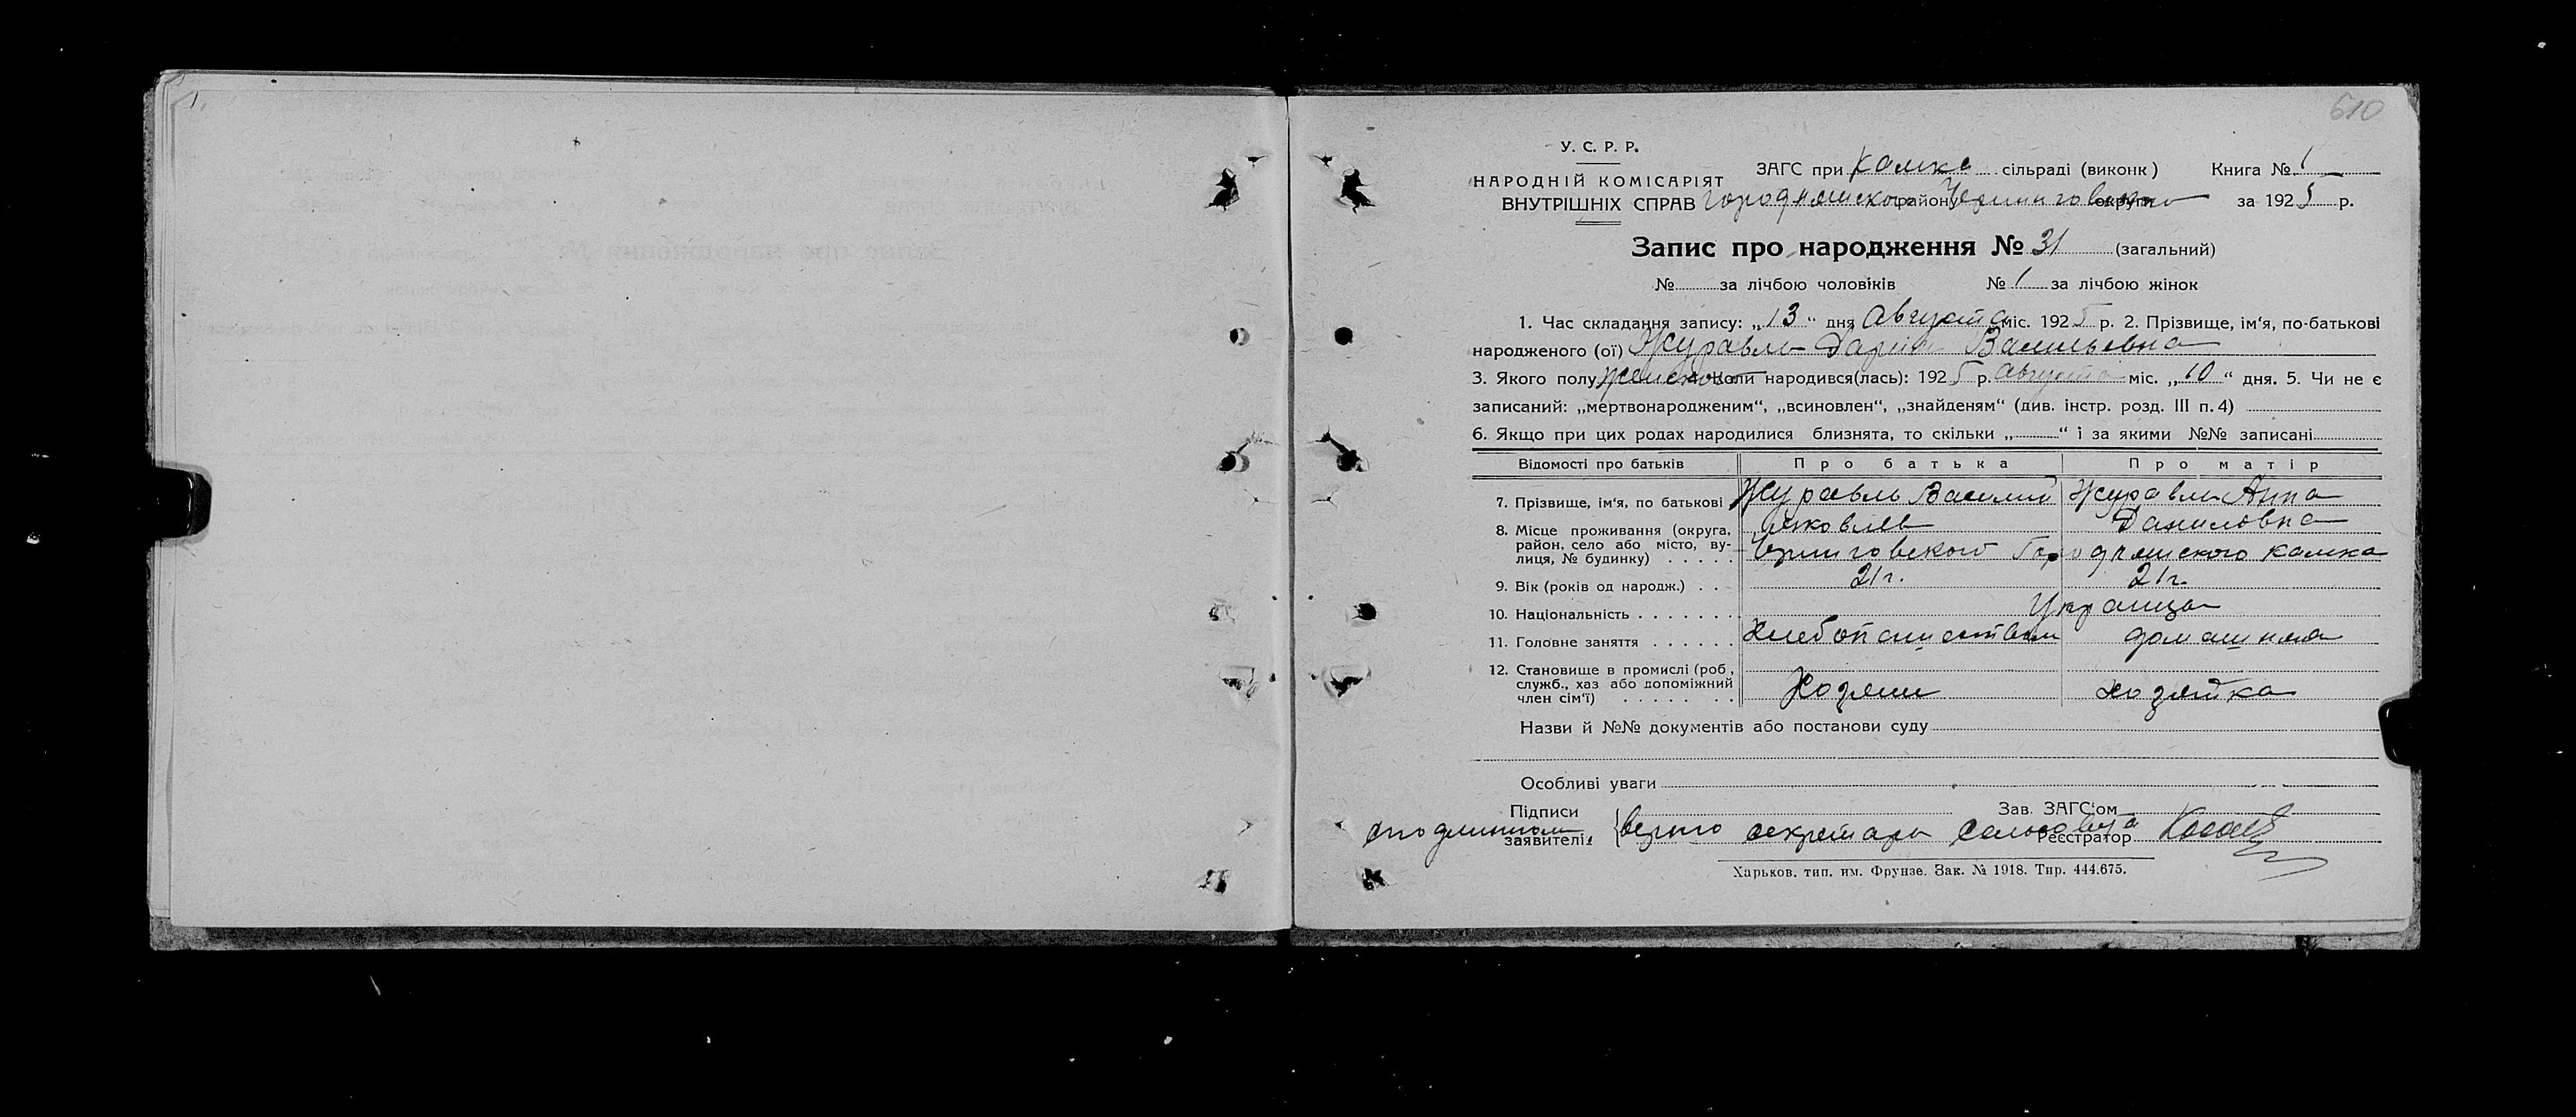 610
У. С. Р. Р.
НАРОДНІЙ КОМІСАРІЯТ
ВНУТРІШНІХ СПРАВ
ЗАГС при Камка сільраді (виконк) Книга № 1
Городнянского району Черниговского округи за 1925 р.
Запис про народження № 31 (загальний)
№ за лічбою чоловіків № 1 за лічбою жінок
1. Час складання запису: „13“ дня Августа міс. 1925 р. 2. Прізвище, ім‘я, по-батькові
народженого (ої) Журавль Дарія Васильевна
3. Якого полу женскою Коли народився(лась): 1925 р. Августа міс. „10“ дня. 5. Чи не є
записаний: „мертвонародженим“, „всиновлен“, „знайденям“ (див. інстр. розд. III п. 4)
6. Якщо при цих родах народилися близнята, то скільки „ “ і за якими №№ записані
Відомості про батьків Про батька Про матір
7. Прізвище, ім‘я, по батькові Журавль Василий Журавль Анна
Яковлев Даниловна
8. Місце проживання (округа,
район, село або місто, ву-
лиця, № будинку) Черниговского Городнянского Камка
9. Вік (років од народж.) 21 г. 21 г.
10. Національність Украинца
11. Головне заняття Хлебопашеством домашняя
12. Становище в промислі (роб,
служб., хаз або допоміжний
член сім‘ї) Хозяин хозяйка
Назви й №№ документів або постанови суду
Особливі уваги
Підписи Зав. ЗАГС‘ом
с подлинном верно секретарь сельсовета
заявителів Реєстратор
Харьков. тип. им. Фрунзе. Зак. № 1918. Тир. 444.675.